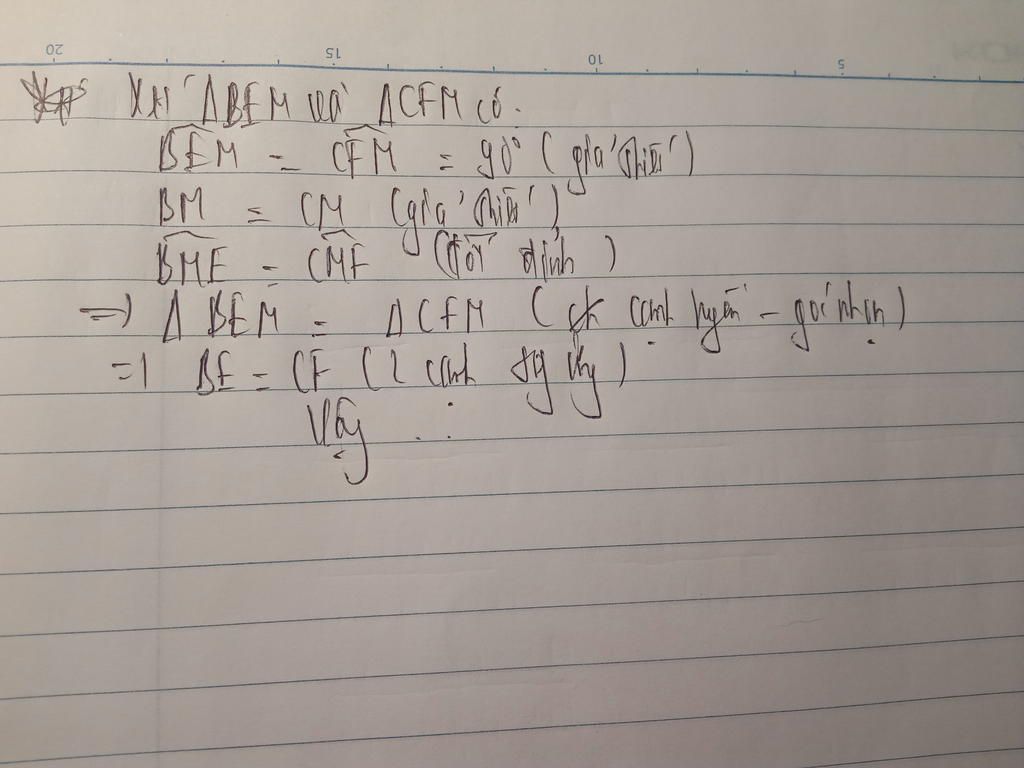 20 15 10 5
Xét ΔBEM và ΔCFM có.
BEM = CFM = 90° (giả thiết)
BM = CM (giả thiết)
BME = CMF (đối đỉnh)
=> ΔBEM = ΔCFM (ch cạnh huyền - góc nhọn)
=> BE = CF (2 cạnh tg ứng)
Vậy ...